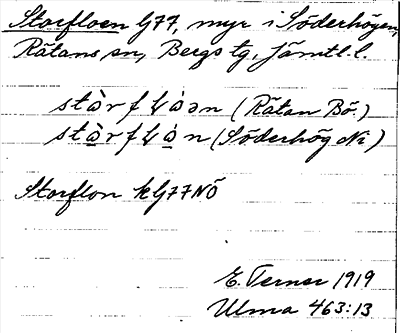 Storfloen G77, myr i Söderhögen,
Rätans sn, Bergs tg, Jämtl. l.
stȧ̀rfɫȧ́ən (Rätan Bö.)
stạ̀rfɫạ́n (Söderhög Ni)
Storflon kG77NÖ
E. Terner 1919
Ulma 463:13